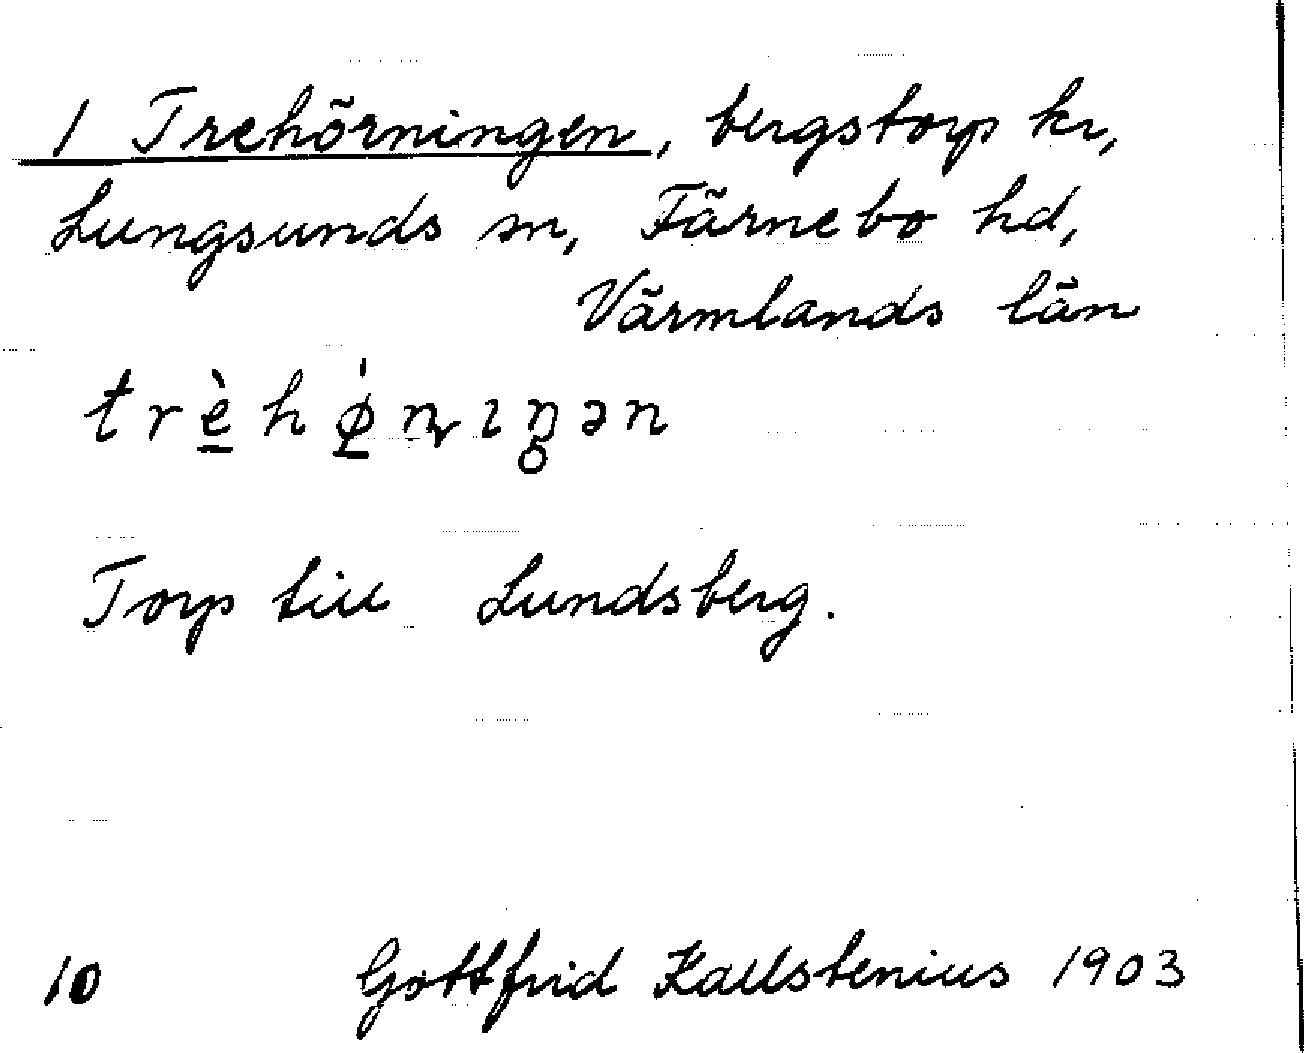 1 Trehörningen, bergstorp kr,
Lungsunds sn, Färnebo hd,
Värmlands län
trè̱hǿ̱ɳıŋən
Torp till Lundsberg.
10 Gottfrid Kallstenius 1903